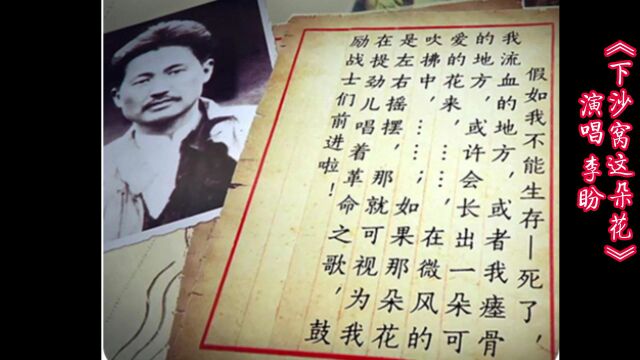 《下沙窝这朵花》
演唱 李盼
假如我不能生存—死了，
我流血的地方，或者我瘗骨
的地方，或许会长出一朵可
爱的花来，……，在微风的
吹拂中，……；如果那朵花
是左右摇摆，那就可视为我
在提劲儿唱着革命之歌，鼓
励战士们前进啦！